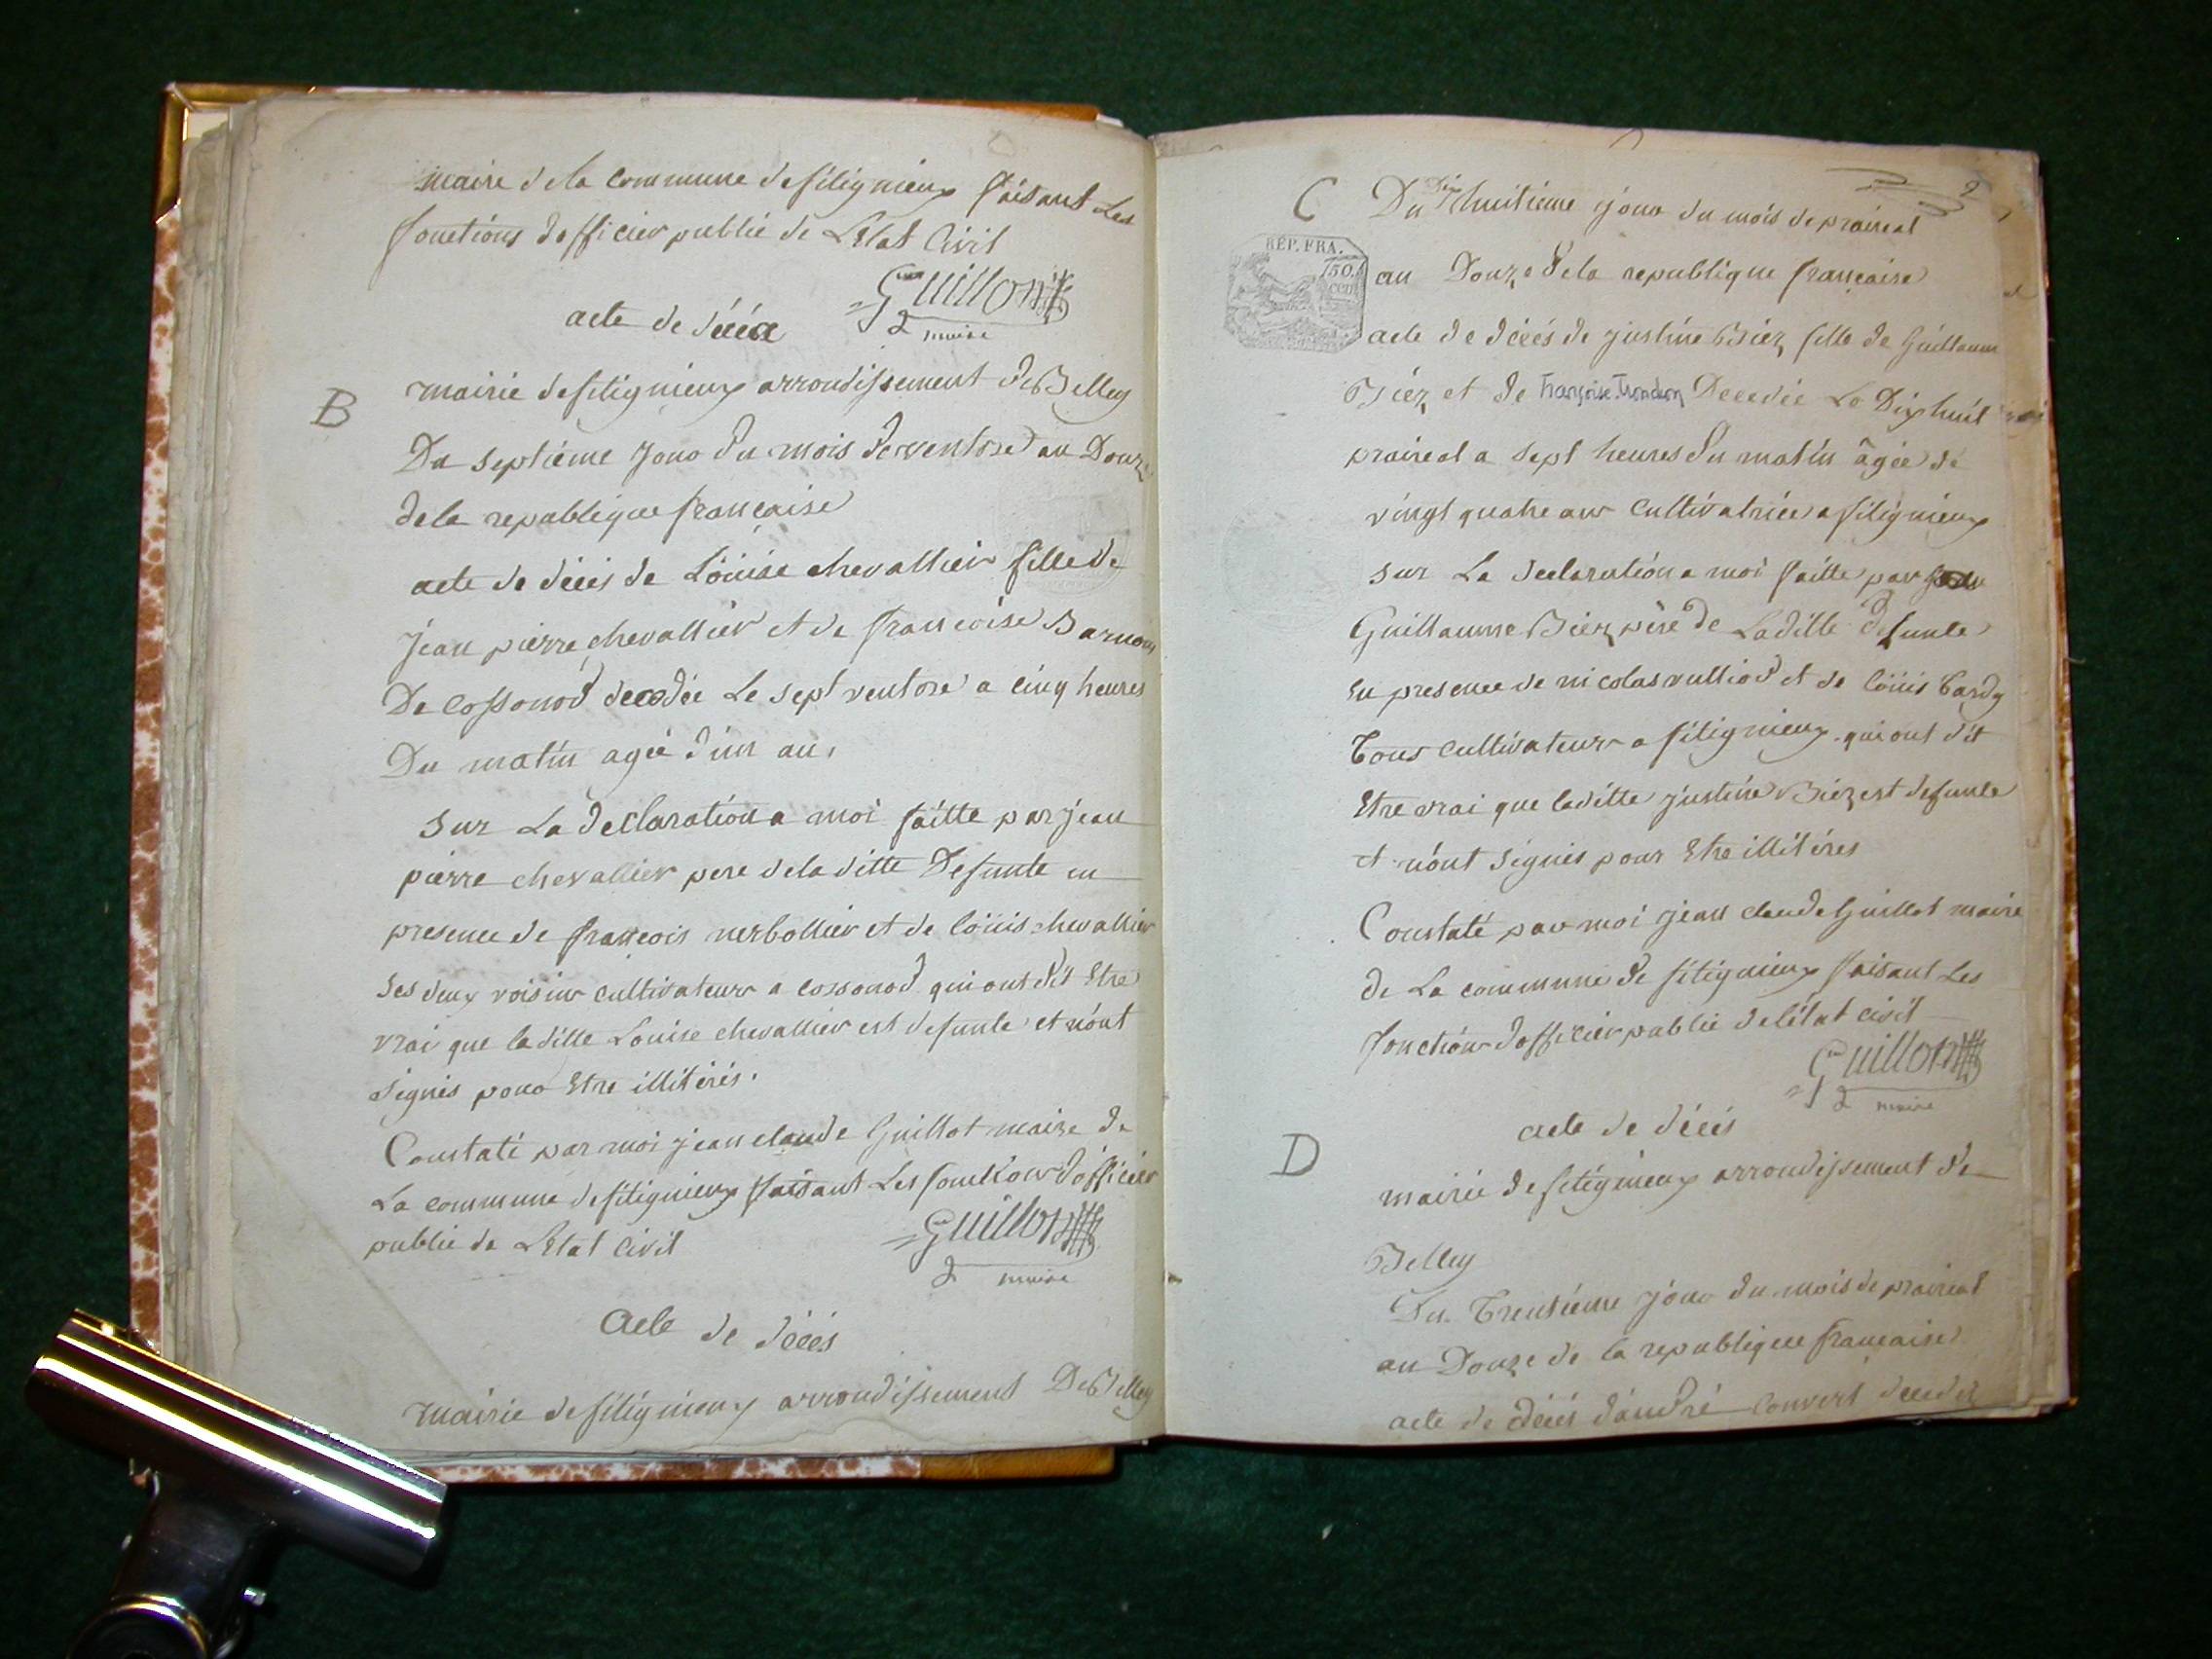 maire de la commune de selignieux faisant les
fonctions dofficier public de Letat Civil
Guillot
maire
acte de décés
B
mairie de selignieux arrondissement de Belley
Du septième jour du mois de ventose an Douze
de la republique française
acte de décés de Loüise chevallier fille de
jean pierre chevallier et de francoise
De Cossonod decedée Le sept ventose a cinq heures
Du matin agée d'un an,
sur La declaration a moi faitte par jean
pierre chevallier pere de la ditte Defunte en
presence de françois nerbollier et de loüis chevallier
ses deux voisins cultivateurs a cossonod qui ont dit Etre
vrai que laditte Louise chevallier est defunte et n'ont
signés pour Etre illitérés.
Constaté par moi jean claude Guillot maire de
La commune de selignieux faisant Les fonctions d'officier
public de L'Etat Civil
Guillot
maire
Acte de décés
mairie de selignieux arrondissement De Belley
2
C
Du Dix huitieme jour du mois de praireal
RÉP. FRA.
50
cent
an Douze de la republique française
acte de décés de justine Biez fille de Guillaume
Biez et de Françoise Decedée Le Dix huit
praireal a sept heures du matin âgée de
vingt quatre ans cultivatrice a selignieux
sur La declaration a moi faitte par
Guillaume Biez père de Laditte defunte
en presence de nicolas vulliod et de loüis tardy
Tous cultivateurs a selignieux qui ont dit
Etre vrai que laditte justine Biez est defunte
et n'ont signés pour Etre illitérés
Constaté par moi jean claude Guillot maire
de La commune de selignieux faisant Les
fonctions d'officier public de l'état civil
Guillot
maire
acte de décés
D
mairie de selignieux arrondissement de
Belley
Du Trentieme jour du mois de praireal
an Douze de la republique française
acte de décés d'andré Convert decedé